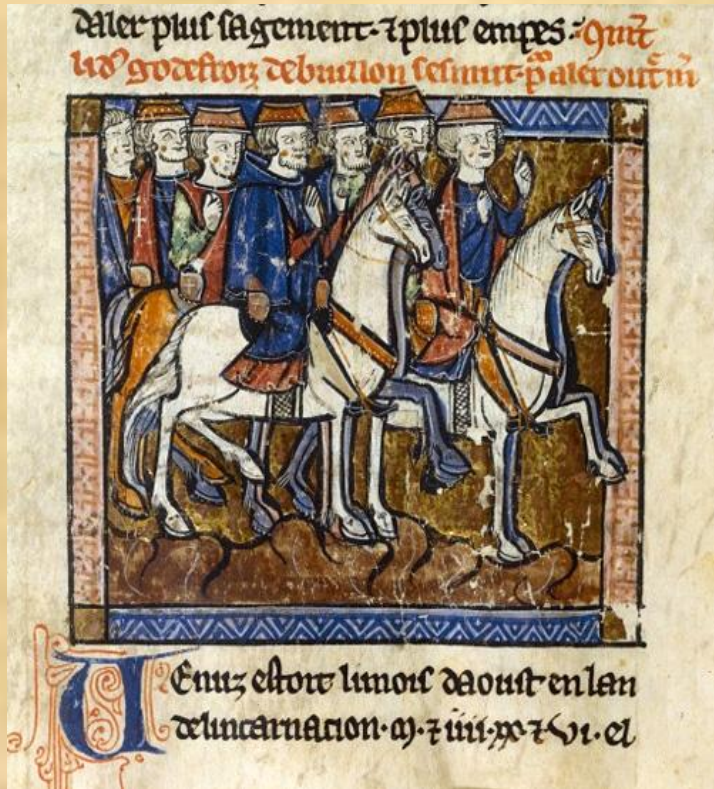 daler plus sagement· ⁊ plus empes·
li dus godefroiz de buillon sesmut· p̃ aler out̃ m̃
Enuz estoit li mois daoust en lan
de lincarnacion· m̃· ⁊ iiii· xx ⁊ vi· el